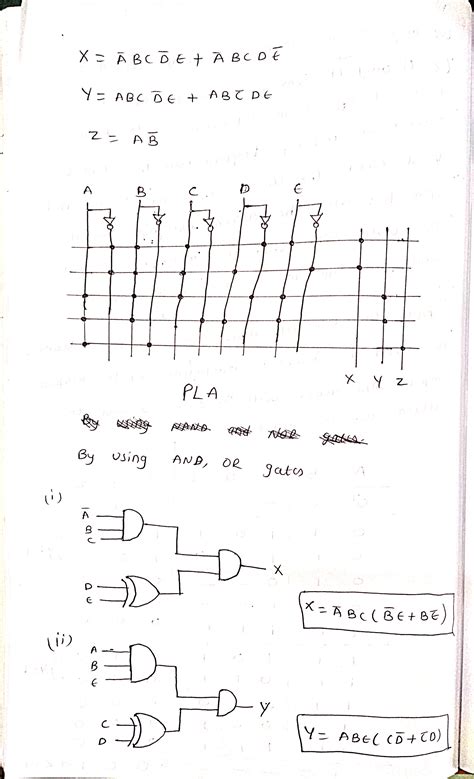 X = A̅BCD̅E + A̅BCDE̅
Y = ABCD̅E + ABC̅DE
Z = AB̅
A B C D E
X Y Z
PLA
By using NAND and NOR gates.
By using AND, OR gates
(i)
A̅
B
C
X
D
E
X = A̅BC(B̅E+BE̅)
(ii)
A
B
E
Y
C
D
Y = ABE(CD̅+C̅D)